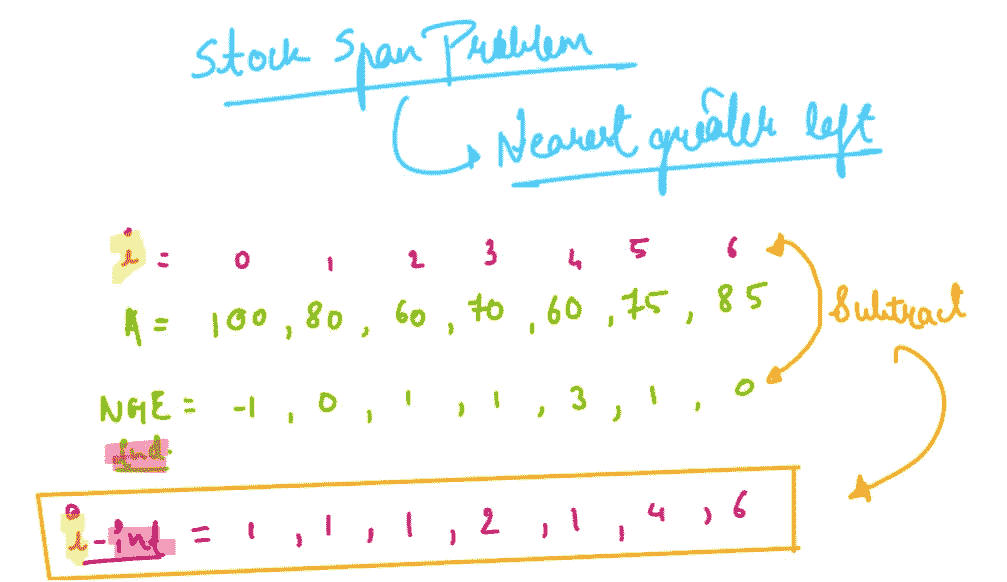 Stock Span Problem
Nearest greater left
i = 0 1 2 3 4 5 6
A = 100 , 80 , 60 , 70 , 60 , 75 , 85
Subtract
NGE = -1 , 0 , 1 , 1 , 3 , 1 , 0
ind
i - ind = 1 , 1 , 1 , 2 , 1 , 4 , 6